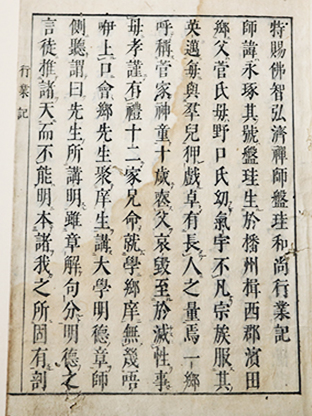 特賜佛智弘濟禪師盤珪和尚行業記
師諱永琢其號盤珪生於播州揖西郡濱田
鄉父菅氏母野口氏幼氣宇不凡宗族服其
英邁每與羣兒狎戲卓有長人之量焉一鄉
呼稱菅家神童十歲喪父哀毀至於滅性事
母孝謹有禮十二家兄命就學鄉庠無幾唔
咿上口會鄉先生聚庠生講大學明德章師
側聽謂曰先生所講明雖章解句分明德之
言徒推諸天而不能明本諸我之所固有剖
行業記